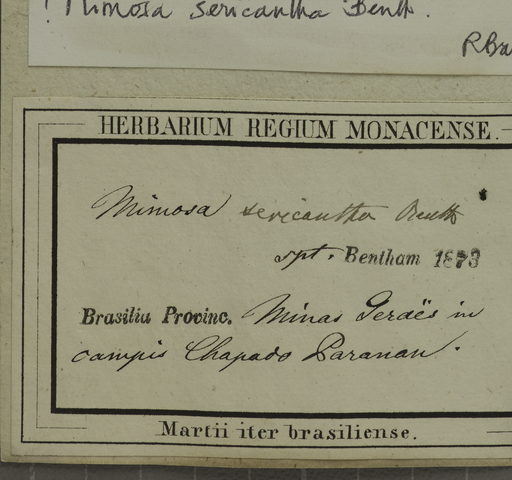 ! Mimosa sericantha Benth.
RBa
HERBARIUM REGIUM MONACENSE.
Mimosa sericantha Benth
Bentham 1873
Brasilia Provinc. Minas Geraës in
campis Chapado Paranan.
Martii iter brasiliense.